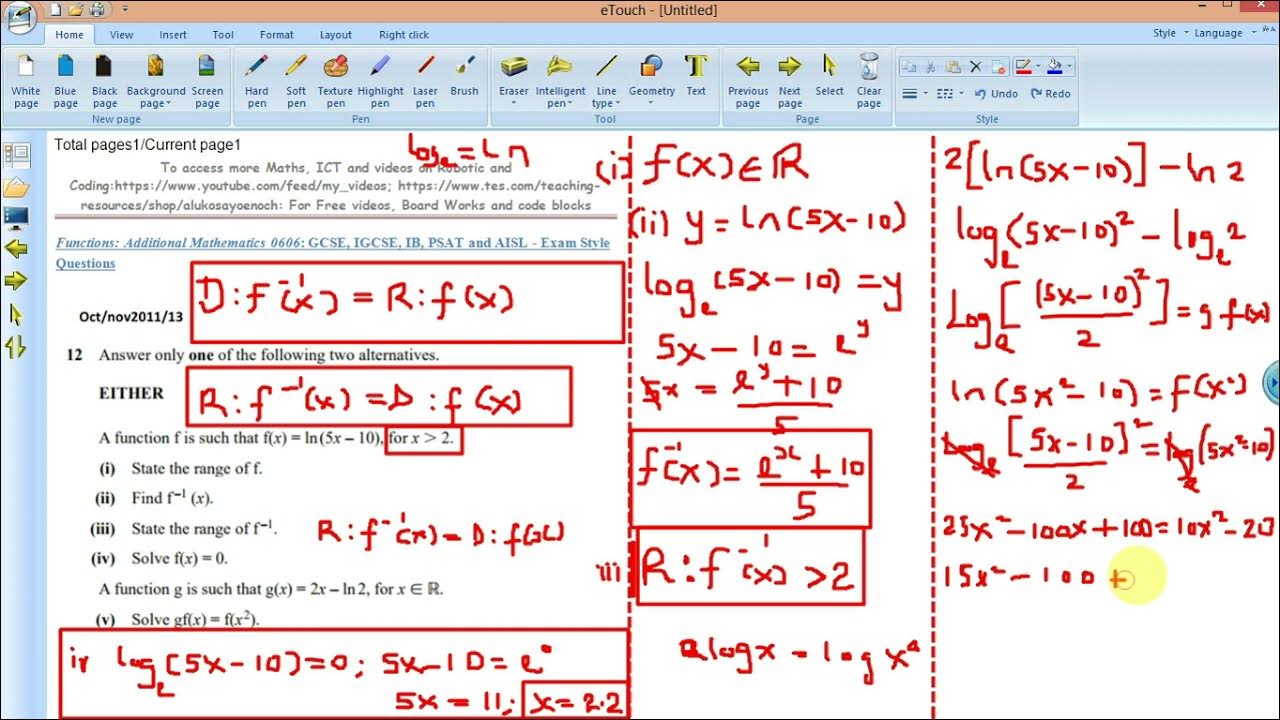 eTouch - [Untitled]
Home View Insert Tool Format Layout Right click
Style Language
White page Blue page Black page Background page Screen page
Hard pen Soft pen Texture pen Highlight pen Laser pen Brush
Eraser Intelligent pen Line type Geometry Text
Previous page Next page Select Clear page
Undo Redo
New page Pen Tool Page Style
Total pages1/Current page1
logₑ = ln
To access more Maths, ICT and videos on Robotic and
Coding:https://www.youtube.com/feed/my_videos; https://www.tes.com/teaching-
resources/shop/alukosayoenoch: For Free videos, Board Works and code blocks
Functions: Additional Mathematics 0606: GCSE, IGCSE, IB, PSAT and AISL - Exam Style
Questions
D : f⁻¹(x) = R : f(x)
Oct/nov2011/13
12 Answer only one of the following two alternatives.
EITHER
R : f⁻¹(x) = D : f(x)
A function f is such that f(x) = ln(5x – 10), for x > 2.
(i) State the range of f.
(ii) Find f⁻¹ (x).
(iii) State the range of f⁻¹.
R : f⁻¹(x) = D : f(x)
(iv) Solve f(x) = 0.
A function g is such that g(x) = 2x – ln 2, for x ∈ ℝ.
(v) Solve gf(x) = f(x²).
iv logₑ(5x – 10) = 0; 5x – 10 = e⁰
5x = 11; x = 2.2
(i) f(x) ∈ ℝ
(ii) y = ln(5x – 10)
logₑ(5x – 10) = y
5x – 10 = eʸ
5x = eʸ + 10
5
f⁻¹(x) = eˣ + 10
5
iii R : f⁻¹(x) > 2
a log x = log xᵃ
2[ln(5x – 10)] – ln 2
logₑ(5x – 10)² – logₑ2
Logₑ[(5x – 10)²
2] = gf(x)
ln(5x² – 10) = f(x²)
logₑ[5x – 10]²
2 = logₑ(5x² – 10)
25x² – 100x + 100 = 10x² – 20
15x² – 100 +